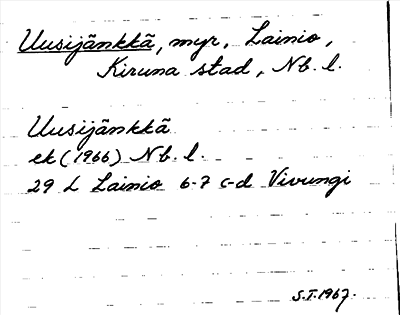 Uusijänkkä, myr, Lainio,
Kiruna stad, Nb. l.
Uusijänkkä
ek (1966) Nb. l.
29 L Lainio 6-7 c-d Vivungi
S.I. 1967.